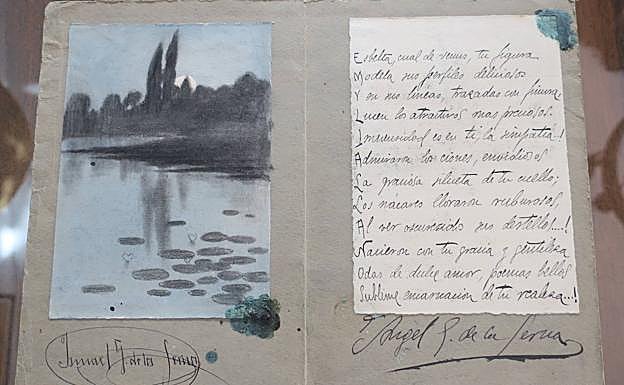 Esbelta, cual de venus, tu figura
Modela sus perfiles deliciosos
Y en sus líneas, trazadas con finura
Lucen los atractivos mas preciosos.
es en ti, la simpatía...!
Admiraron los cisnes, envidiosos
La graciosa silueta de tu cuello;
Los nácares lloraron ruborosos,
Al ver oscurecido sus destellos...!
Nacieron con tu gracia y gentileza
Odas de dulce amor, poemas bellos
Sublime encarnacion de tu realeza...!
Ismael G. de la Serna
Angel G. de la Serna